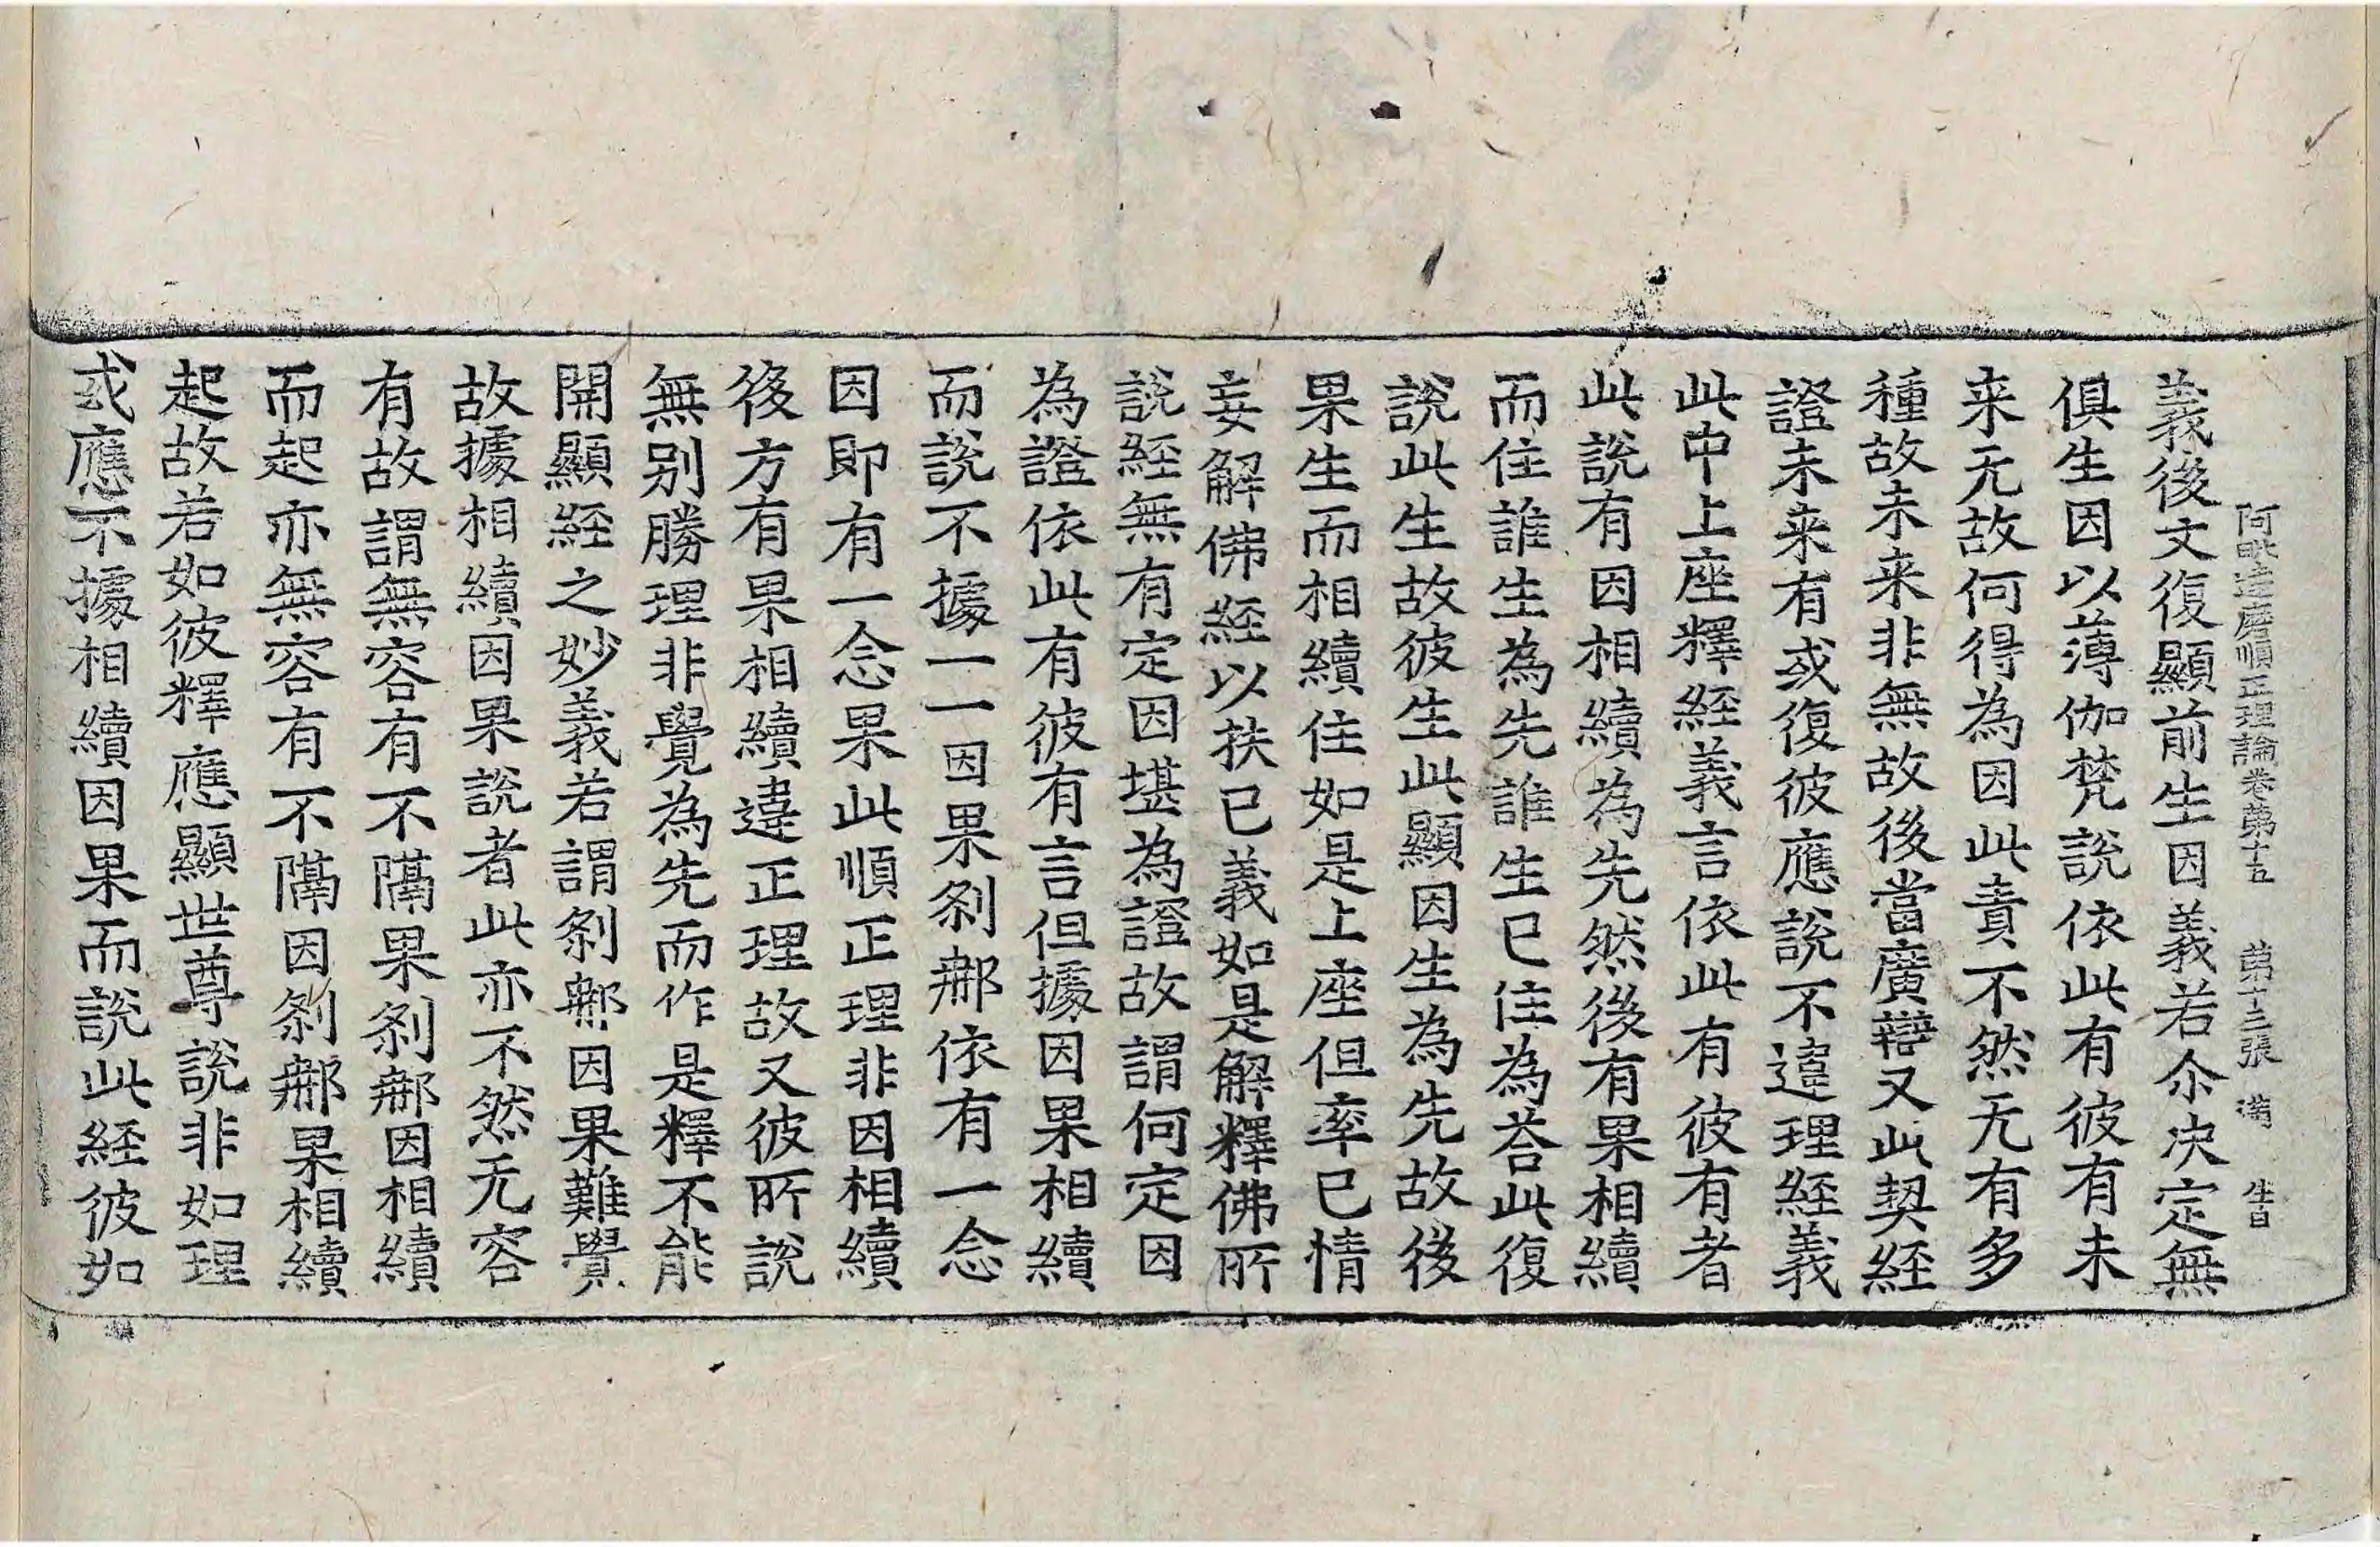 阿毗達磨順正理論卷第十五 第十三張 滿 生白
義後文復顯前生因義若尒决定無
俱生因以薄伽梵說依此有彼有未
来无故何得為因此責不然无有多
種故未来非無故後當廣辯又此契經
證未来有或復彼應說不違理經義
此中上座釋經義言依此有彼有者
此說有因相續為先然後有果相續
而住誰生為先誰生已住為荅此復
說此生故彼生此顯因生為先故後
果生而相續住如是上座但率己情
妄解佛經以扶已義如是解釋佛所
說經無有定因堪為證故謂何定因
為證依此有彼有言但據因果相續
而說不據一一因果剎那依有一念
因即有一念果此順正理非因相續
後方有果相續違正理故又彼所說
無别勝理非覺為先而作是釋不能
開顯經之妙義若謂剎那因果難覺
故據相續因果說者此亦不然无容
有故謂無容有不隔果剎那因相續
而起亦無容有不隔因剎那果相續
起故若如彼釋應顯世尊說非如理
或應不據相續因果而說此經彼如